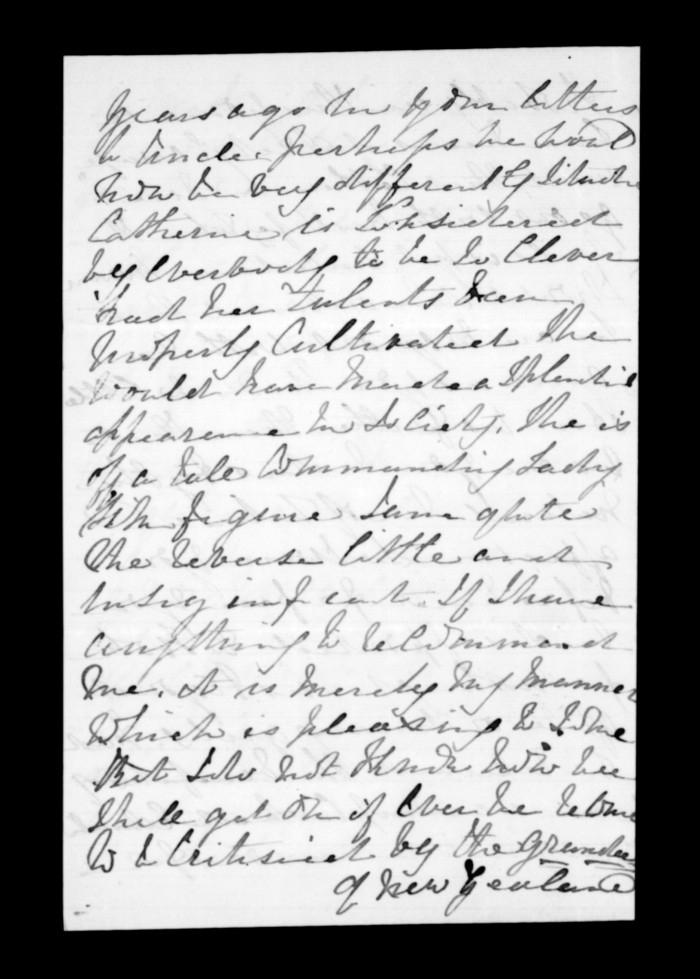 years ago in your letters
to Uncle. perhaps we would
now be very differently situate
Catherine is Considered
by Everbody to be so Clever
had her Talents been
properly Cultivated She
would have made a Splendid
appearance in Society. She is
of a tale Commanding Lady
like figure I am quite
the reverse little and
insignificant. If I have
anything to reccommend
me. it is merely my manner
Which is pleasing to Some
But I do not think how we
shall get on if Ever we
to be Critisised by the Grandees
of New Zealand